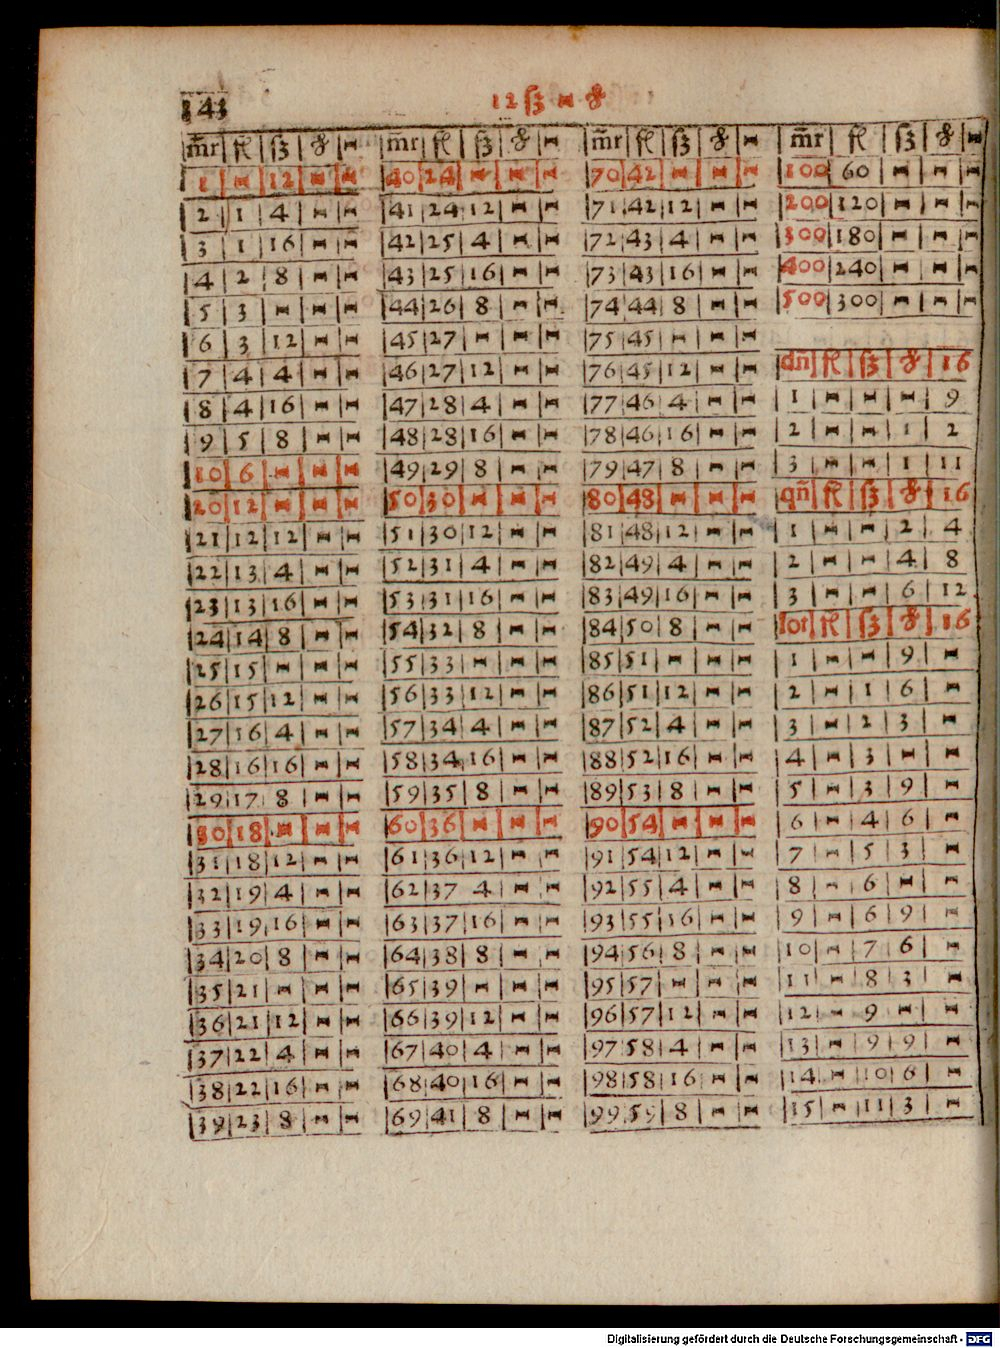 12 ß – ₰
m̄r fl ß ₰ –
1 – 12 – –
2 1 4 – –
3 1 16 – –
4 2 8 – –
5 3 – – –
6 3 12 – –
7 4 4 – –
8 4 16 – –
9 5 8 – –
10 6 – – –
20 12 – – –
21 12 12 – –
22 13 4 – –
23 13 16 – –
24 14 8 – –
25 15 – – –
26 15 12 – –
27 16 4 – –
28 16 16 – –
29 17 8 – –
30 18 – – –
31 18 12 – –
32 19 4 – –
33 19 16 – –
34 20 8 – –
35 21 – – –
36 21 12 – –
37 22 4 – –
38 22 16 – –
39 23 8 – –
m̄r fl ß ₰ –
40 24 – – –
41 24 12 – –
42 25 4 – –
43 25 16 – –
44 26 8 – –
45 27 – – –
46 27 12 – –
47 28 4 – –
48 28 16 – –
49 29 8 – –
50 30 – – –
51 30 12 – –
52 31 4 – –
53 31 16 – –
54 32 8 – –
55 33 – – –
56 33 12 – –
57 34 4 – –
58 34 16 – –
59 35 8 – –
60 36 – – –
61 36 12 – –
62 37 4 – –
63 37 16 – –
64 38 8 – –
65 39 – – –
66 39 12 – –
67 40 4 – –
68 40 16 – –
69 41 8 – –
m̄r fl ß ₰ –
70 42 – – –
71 42 12 – –
72 43 4 – –
73 43 16 – –
74 44 8 – –
75 45 – – –
76 45 12 – –
77 46 4 – –
78 46 16 – –
79 47 8 – –
80 48 – – –
81 48 12 – –
82 49 4 – –
83 49 16 – –
84 50 8 – –
85 51 – – –
86 51 12 – –
87 52 4 – –
88 52 16 – –
89 53 8 – –
90 54 – – –
91 54 12 – –
92 55 4 – –
93 55 16 – –
94 56 8 – –
95 57 – – –
96 57 12 – –
97 58 4 – –
98 58 16 – –
99 59 8 – –
m̄r fl ß ₰ –
100 60 – – –
200 120 – – –
300 180 – – –
400 240 – – –
500 300 – – –
dn̄ fl ß ₰ 16
1 – – – 9
2 – – 1 2
3 – – 1 11
qn̄ fl ß ₰ 16
1 – – 2 4
2 – – 4 8
3 – – 6 12
lot fl ß ₰ 16
1 – – 9 –
2 – 1 6 –
3 – 2 3 –
4 – 3 – –
5 – 3 9 –
6 – 4 6 –
7 – 5 3 –
8 – 6 – –
9 – 6 9 –
10 – 7 6 –
11 – 8 3 –
12 – 9 – –
13 – 9 9 –
14 – 10 6 –
15 – 11 3 –
Digitalisierung gefördert durch die Deutsche Forschungsgemeinschaft - DFG